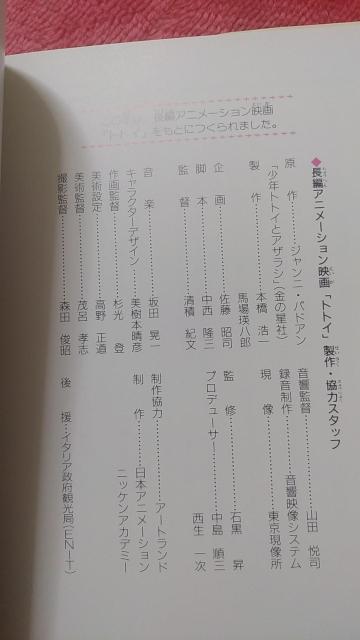 この本は、長編アニメーション映画
「トトイ」をもとにつくられました。
◆長編アニメーション映画「トトイ」製作・協力スタッフ
原作……ジャンニ・パドアン
「少年トトイとアザラシ」(金の星社)
製作……本橋 浩一
馬場瑛八郎
企画……佐藤 昭司
脚本……中西 隆三
監督……清積 紀文
音楽……坂田 晃一
キャラクターデザイン……美樹本晴彦
作画監督……杉光 登
美術設定……高野 正道
美術監督……茂呂 孝志
撮影監督……森田 俊昭
音響監督……山田 悦司
録音制作……音響映像システム
現像……東京現像所
監修……石黒 昇
プロデューサー……中島 順三
西生 一次
制作協力……アートランド
制作……日本アニメーション
ニッケンアカデミー
後援……イタリア政府観光局(ENIT)